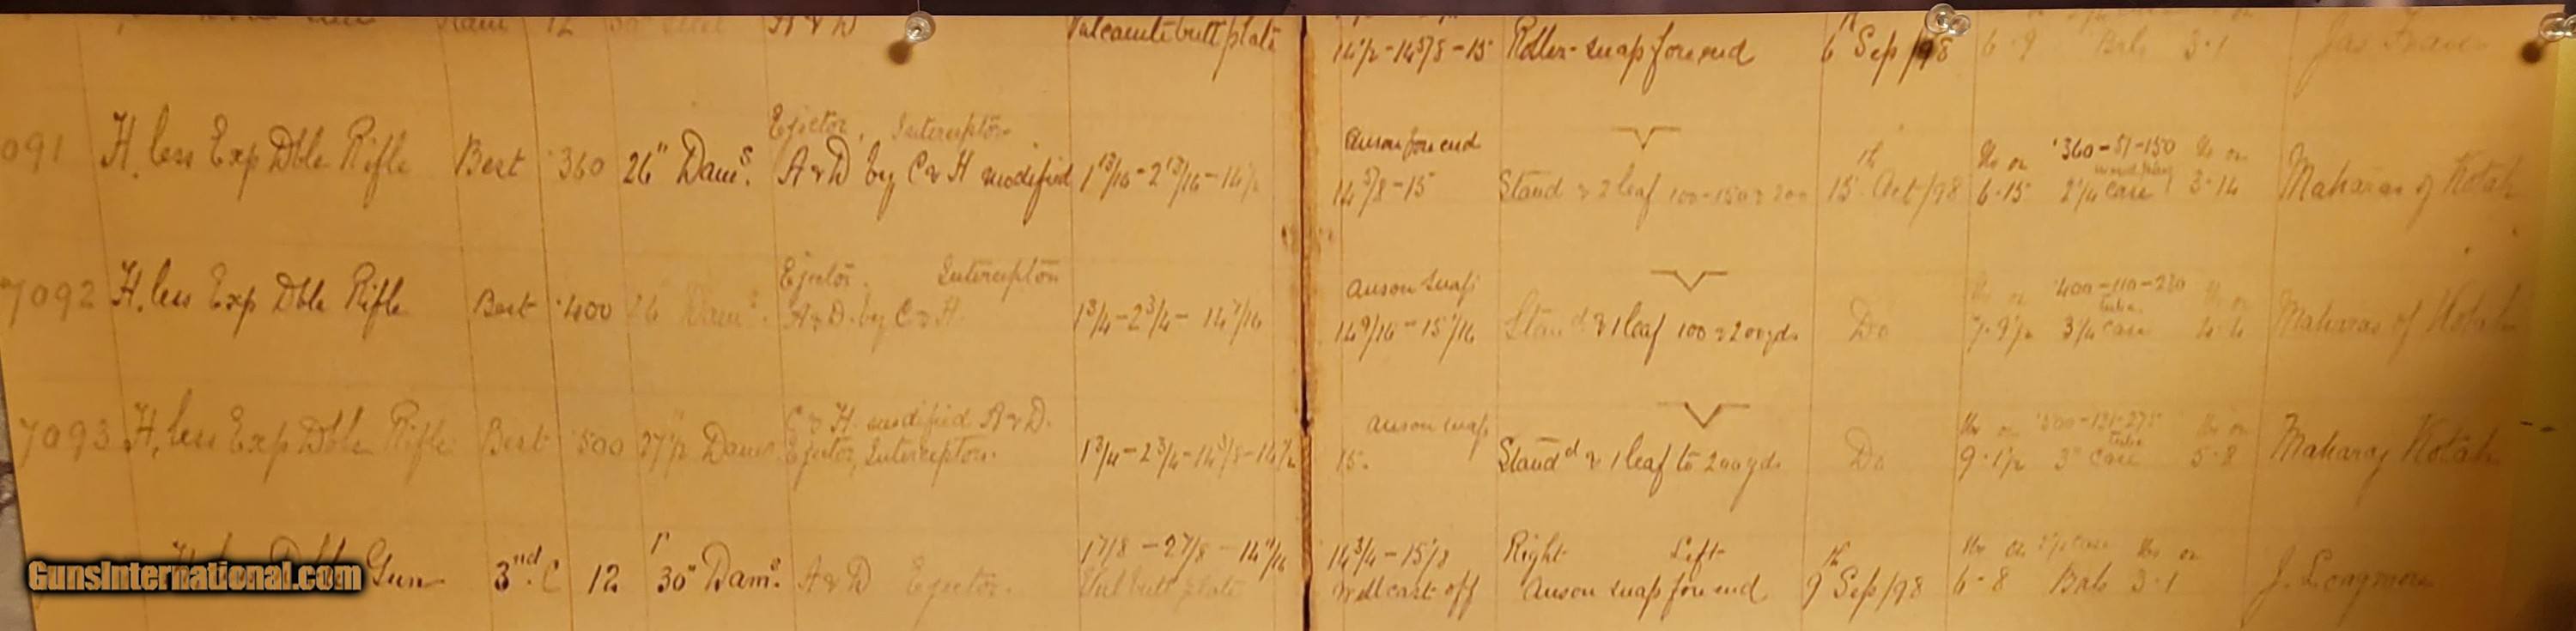 12 A & D Vulcanite butt plate
14 1/2 - 14 5/8 - 15 Roller-snap fore end 6th Sep/98 6-9 Brls 3-1 Jas
091 H. less Exp Dble Rifle Best .360 26" Dams. Ejector, Interceptor
A & D by C & H modified 1 13/16 - 2 13/16 - 14 1/2
Anson fore end
14 5/8 - 15 Stand & 2 leaf 100-150 & 200 15th Oct/98 lbs oz 6-15 .360-51-150 2 1/4 case lbs oz 3-14 Maharao of Kotah
7092 H. less Exp Dble Rifle Best .400 26" Dams. Ejector. Interceptor
A & D. by C & H. 1 3/4 - 2 3/4 - 14 7/16
Anson snap
14 9/16 - 15 1/16 Stand & 1 leaf 100 & 200 yds Do lbs oz 7-9 1/2 .400-110-230 tube 3 1/4 case lbs oz 4-4 Maharao of Kotah
7093 H. less Exp Dble Rifle Best .500 27 1/2" Dams. C & H. modified A & D.
Ejector, Interceptor. 1 3/4 - 2 3/4 - 14 3/8 - 14 1/2
Anson snap
15. Standd & 1 leaf to 200 yds Do lbs oz 9-1 1/2 3" case lbs oz 5-8 Maharaj Kotah
H. less Dble Gun 3nd. C 12 30" Dams. A & D Ejector. 1 7/8 - 2 7/8 - 14 11/16
Steel butt plate
14 3/4 - 15 1/8 Right Left
Well cast off Anson snap fore end 9th Sep/98 lbs oz 6-8 Brls lbs oz 3-1 J. Longmore
GunsInternational.com